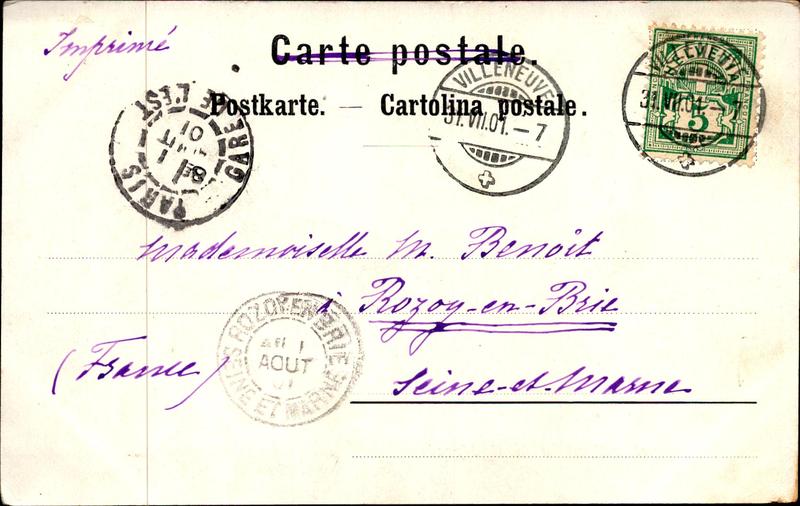 Imprimé
Carte postale.
Postkarte. — Cartolina postale.
VILLENEUVE
31.VII.01.–7
HELVETIA
5
31.VII.01.–7
PARIS GARE DE L'EST
AOUT
01
Mademoiselle M. Benoît
à Rozoy-en-Brie
(France)
Seine-et-Marne
ROZOY EN BRIE
1
AOUT
01
SEINE ET MARNE